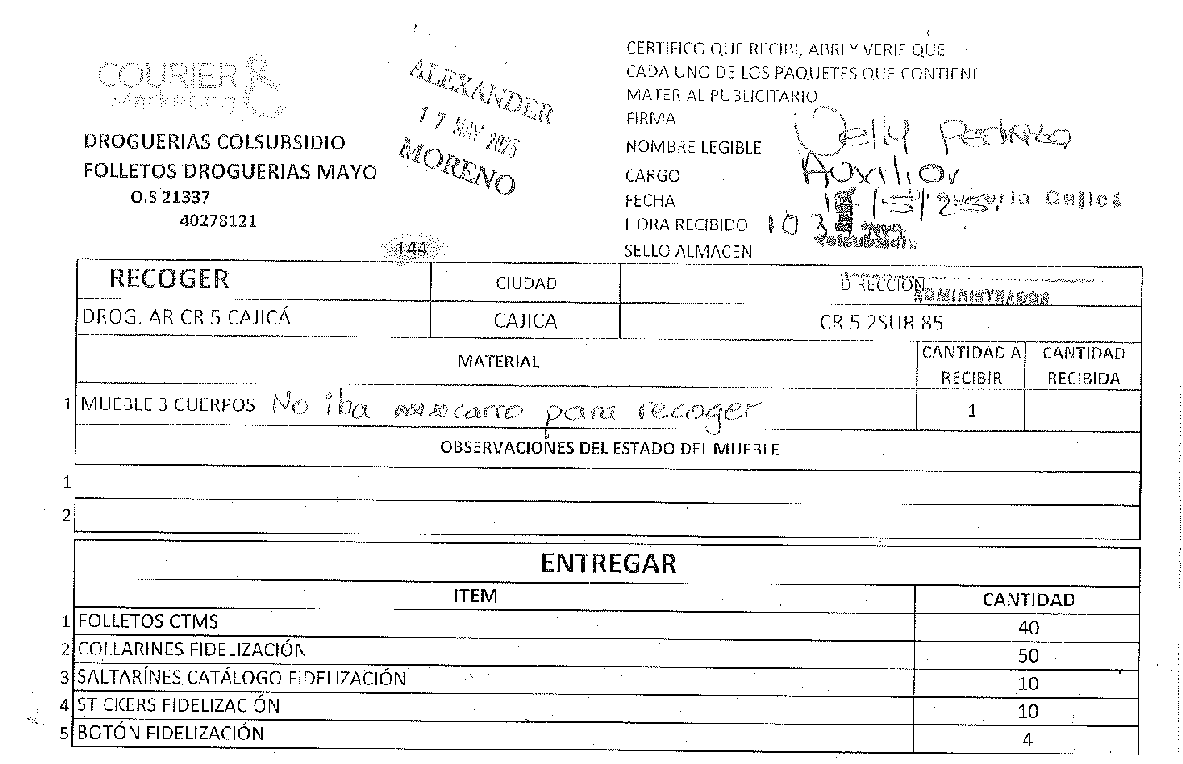 COURIER
Marketing
DROGUERIAS COLSUBSIDIO
FOLLETOS DROGUERIAS MAYO
O.S 21337
40278121
ALEXANDER
17 MAY 2025
MORENO
CERTIFICO QUE RECIBI, ABRI Y VERIF QUE
CADA UNO DE LOS PAQUETES QUE CONTIENE
MATERIAL PUBLICITARIO
FIRMA
NOMBRE LEGIBLE
CARGO Auxiliar
FECHA
HORA RECIBIDO
SELLO ALMACEN
144
RECOGER CIUDAD DIRECCION
ADMINISTRADOR
DROG. AR CR 5 CAJICÁ CAJICA CR 5 2SUR 85
MATERIAL CANTIDAD A RECIBIR CANTIDAD RECIBIDA
1 MUEBLE 3 CUERPOS No iba carro para recoger 1
OBSERVACIONES DEL ESTADO DEL MUEBLE
1
2
ENTREGAR
ITEM CANTIDAD
1 FOLLETOS CTMS 40
2 COLLARINES FIDELIZACIÓN 50
3 SALTARÍNES CATÁLOGO FIDELIZACIÓN 10
4 STICKERS FIDELIZACIÓN 10
5 BOTÓN FIDELIZACIÓN 4